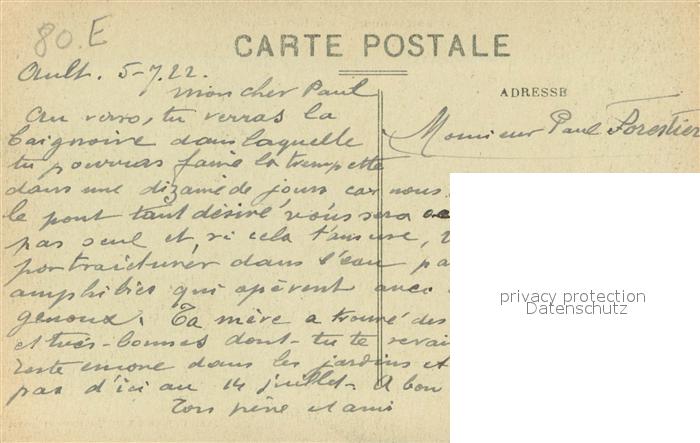 80.E
CARTE POSTALE
Ault. 5-7.22.
mon cher Paul
ADRESSE
Au verso, tu verras la
Monsieur Paul Forestier
baignoire dans laquelle
tu pourras faire la trempette
dans une dizaine de jours car nous
le pont tant désiré vous sera
pas seul et, si cela t'amuse,
portraiturer dans l'eau pa
amphibies qui opèrent avec
genoux. Ta mère a trouvé des
et très-bonnes dont tu te
reste encore dans les jardins et
pas d'ici au 14 juillet. A bon
Ton père et ami
privacy protection
Datenschutz